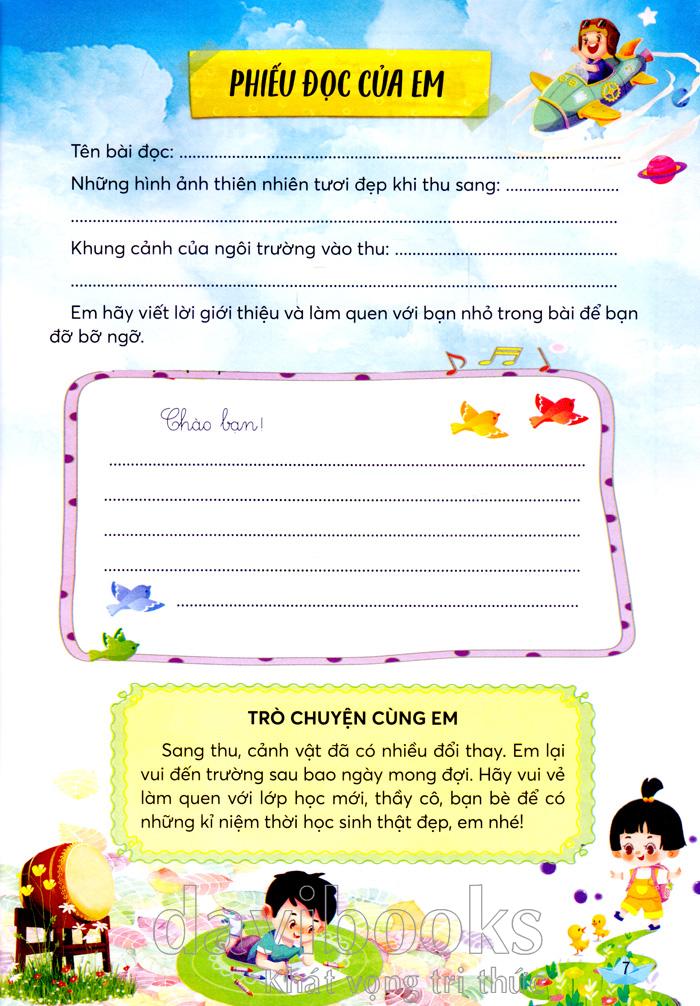 PHIẾU ĐỌC CỦA EM
Tên bài đọc: ................................................................
Những hình ảnh thiên nhiên tươi đẹp khi thu sang: ..........................
................................................................
Khung cảnh của ngôi trường vào thu: ................................................
................................................................
Em hãy viết lời giới thiệu và làm quen với bạn nhỏ trong bài để bạn
đỡ bỡ ngỡ.
Chào bạn!
................................................................
................................................................
................................................................
................................................................
................................................................
TRÒ CHUYỆN CÙNG EM
Sang thu, cảnh vật đã có nhiều đổi thay. Em lại
vui đến trường sau bao ngày mong đợi. Hãy vui vẻ
làm quen với lớp học mới, thầy cô, bạn bè để có
những kỉ niệm thời học sinh thật đẹp, em nhé!
davibooks
Khát vọng tri thức
7